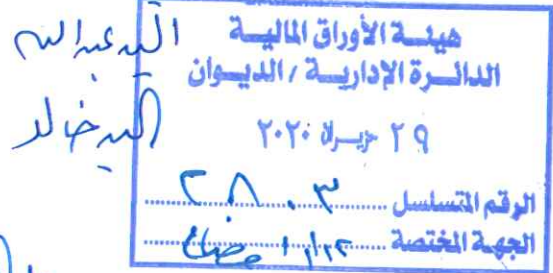 هيئة الأوراق المالية
الدائرة الإدارية / الديوان
٢٩ حزيران ٢٠٢٠
الرقم المتسلسل ٢٨٠٣
الجهة المختصة
السيد عبدالله
السيد خالد